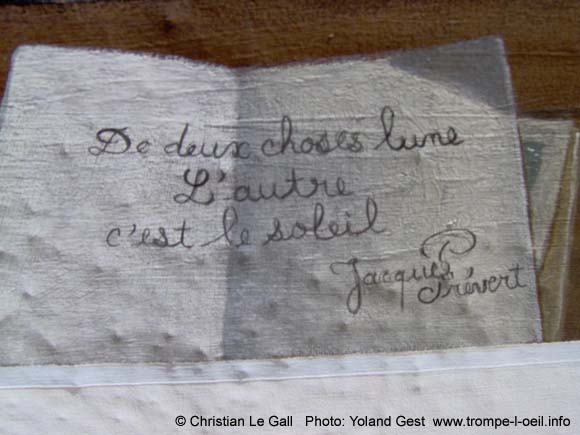 De deux choses lune
L'autre
c'est le soleil
Jacques Prévert
© Christian Le Gall Photo: Yoland Gest www.trompe-l-oeil.info